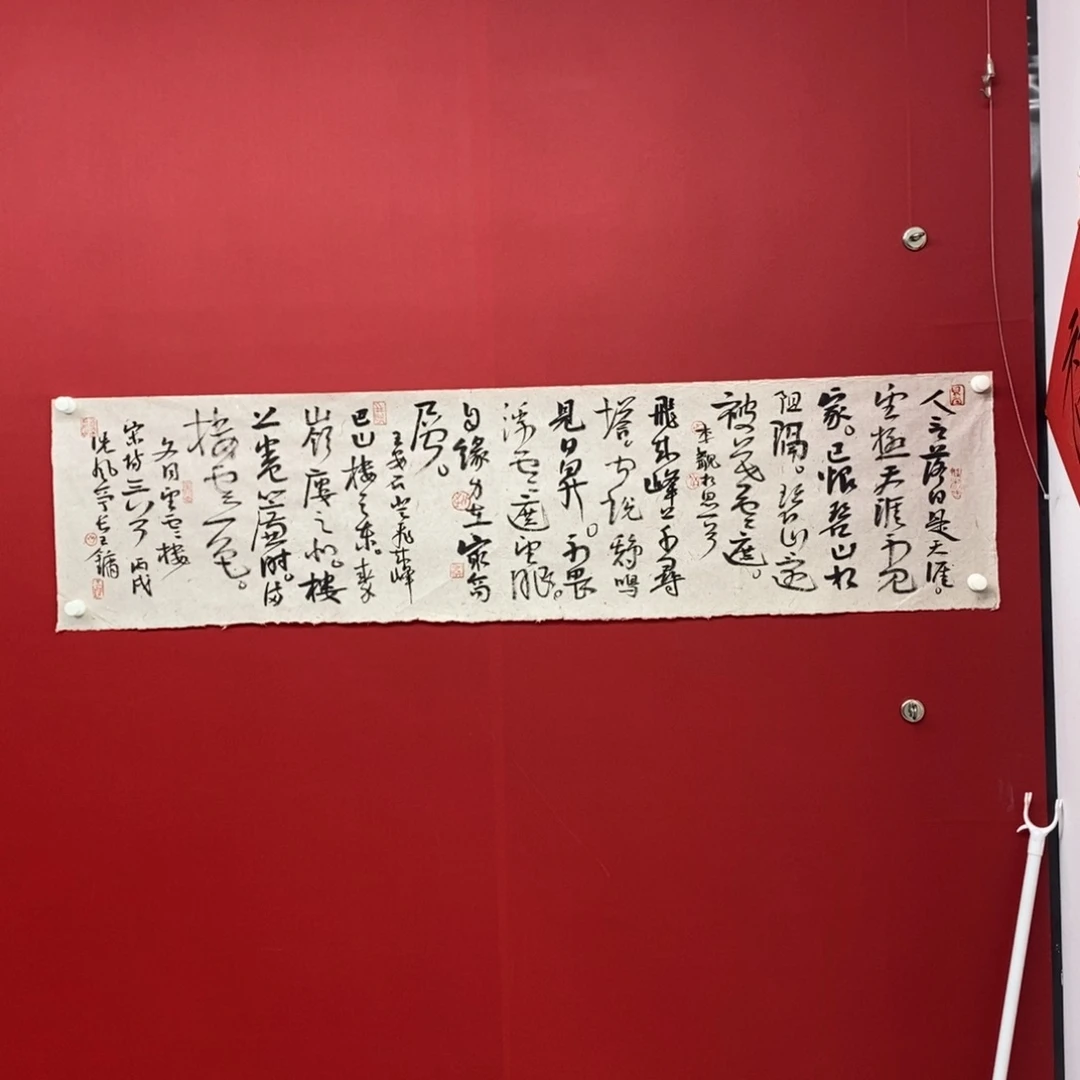 人言落日是天涯。
望極天涯不見
家。已恨碧山相
阻隔。碧山還
被暮雲遮。
李覯
飛來峰上千尋
塔。聞說鷄鳴
見日昇。不畏
浮雲遮望眼。
自緣身在最高
層。
王安石登飛來峰
巴山樓之東。秦
嶺樓之北。樓
上卷簾時。滿
樓雲一色。
文同望雲樓
宋詩三首 丙戌